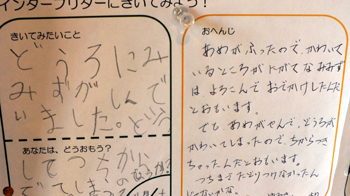 インタープリターにきいてみよう!
きいてみたいこと
どうろにみ
みずがしんで
いました。どうし
あなたは、どうおもう?
してつちから
でてし
おへんじ
あめがふったので、かわいて
いるところがにがてなみみず
は よろこんで おでかけしたんだ
とおもいます。
でも、あめがやんで、どうろが
かわいてしまったので、ちからつき
ちゃったんだとおもいます。
つちまでたどりつけなかったん